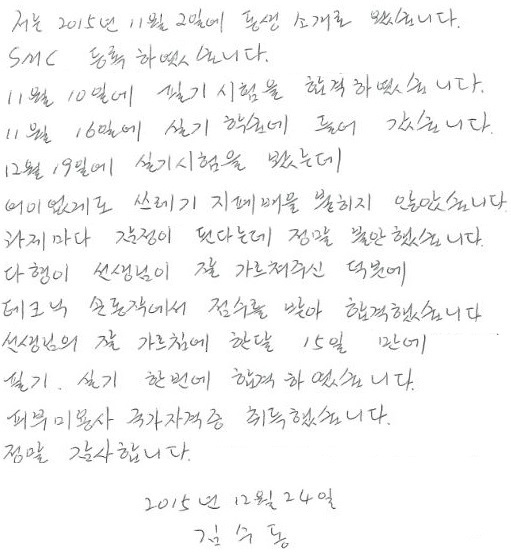 저는 2015년 11월 2일에 동생 소개로 왔습니다.
SMC 등록 하였습니다.
11월 10일에 필기시험을 합격하였습니다.
11월 16일에 실기 학습에 들어 갔습니다.
12월 19일에 실기시험을 봤는데
어이없게도 쓰레기 지폐배물 붙히지 않았습니다.
과제마다 감점이 된다는데 정말 불안했습니다.
다행이 선생님이 잘 가르쳐주신 덕분에
테크닉 손동작에서 점수를 받아 합격했습니다
선생님의 잘 가르침에 한달 15일 만에
필기. 실기 한번에 합격하였습니다.
피부미용사 국가자격증 취득했습니다.
정말 감사합니다.
2015년 12월 24일
김수동